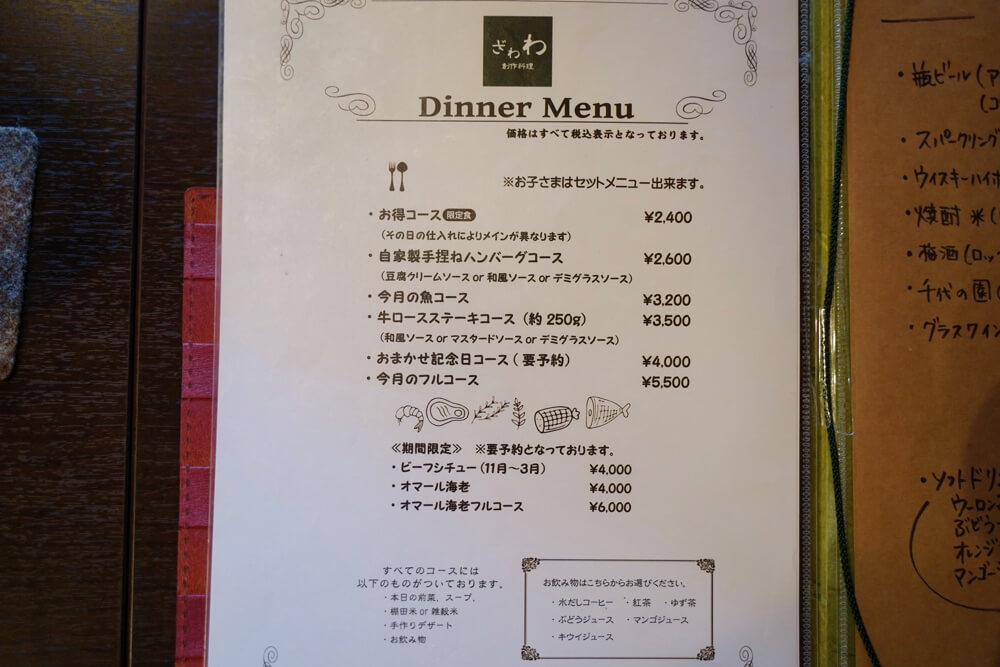 ざわわ
創作料理
Dinner Menu
価格はすべて税込表示となっております。
※お子さまはセットメニュー出来ます。
・お得コース 限定食 ¥2,400
(その日の仕入れによりメインが異なります)
・自家製手捏ねハンバーグコース ¥2,600
(豆腐クリームソース or 和風ソース or デミグラスソース)
・今月の魚コース ¥3,200
・牛ロースステーキコース (約 250g) ¥3,500
(和風ソース or マスタードソース or デミグラスソース)
・おまかせ記念日コース ( 要予約) ¥4,000
・今月のフルコース ¥5,500
≪期間限定≫ ※要予約となっております。
・ビーフシチュー (11月～3月) ¥4,000
・オマール海老 ¥4,000
・オマール海老フルコース ¥6,000
すべてのコースには
以下のものがついております。
・本日の前菜、スープ、
・棚田米 or 雑穀米
・手作りデザート
・お飲み物
お飲み物はこちらからお選びください。
・水だしコーヒー ・紅茶 ・ゆず茶
・ぶどうジュース ・マンゴジュース
・キウイジュース
・瓶ビール (ア
(コ
・スパークリング
・ウィスキーハイボ
・焼酎 米 (
・梅酒 (ロッ
・千代の園 (
・グラスワイン
・ソフトドリ
ウーロン
ぶどう
オレンジ
マンゴー